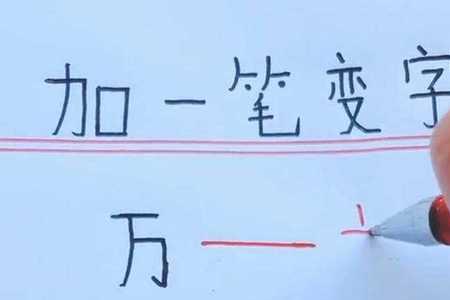 加一笔变字
万 —